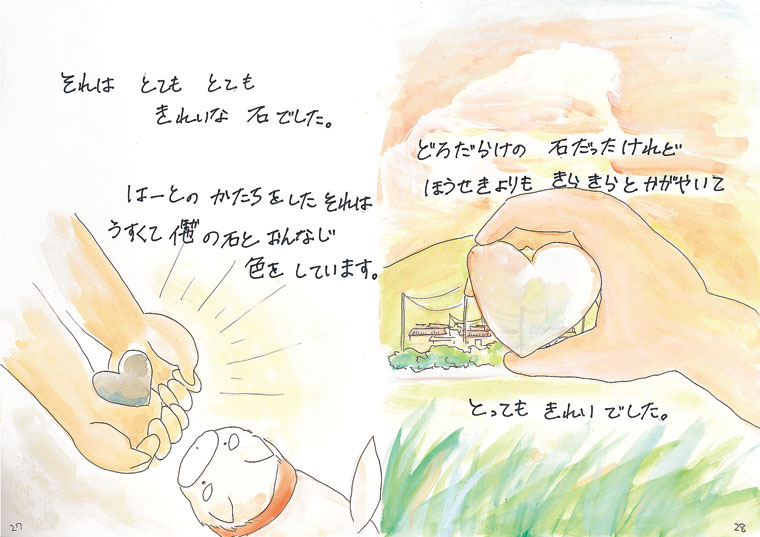 それは とても とても
きれいな 石でした。
はーとの かたちをした それは
うすくて の石と おんなじ
色を しています。
27
どろだらけの 石だったけれど
ほうせきよりも きらきらと かがやいて
とっても きれいでした。
28